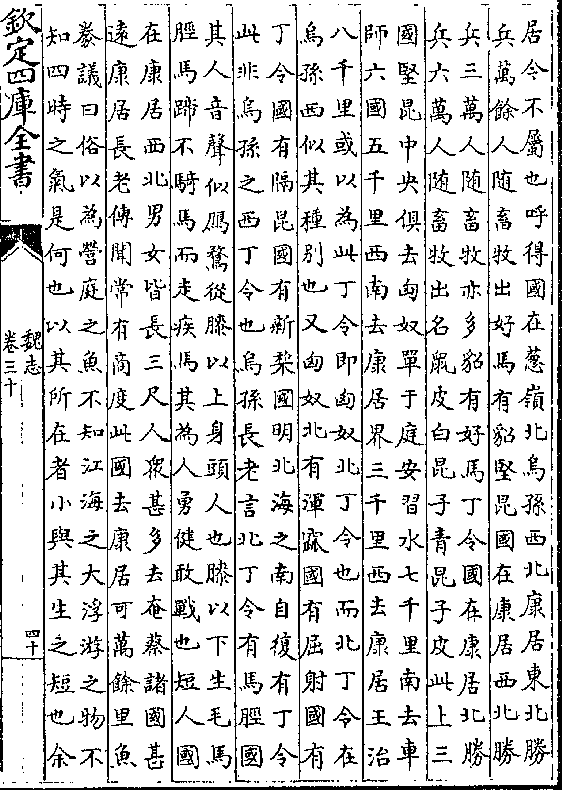 居今不屬也呼得國在蔥嶺北烏孫西北康居東北勝
兵萬餘人随畜牧出好馬有貂堅昆國在康居西北勝
兵三萬人随畜牧亦多貂有好馬丁令國在康居北勝
兵六萬人随畜牧出名鼠皮白昆子青昆子皮此上三
國堅昆中央俱去匈奴單于庭安習水七千里南去車
師六國五千里西南去康居界三千里西去康居王治
八千里或以為此丁令即匈奴北丁令也而北丁令在
烏孫西似其種别也又匈奴北有渾窳國有屈射國有
丁令國有隔昆國有新棃國明北海之南自復有丁令
此非烏孫之西丁令也烏孫長老言北丁令有馬脛國
其人音聲似鴈鶩從膝以上身頭人也膝以下生毛馬
脛馬蹄不騎馬而走疾馬其為人勇健敢戰也短人國
在康居西北男女皆長三尺人衆甚多去奄蔡諸國甚
逺康居長老傳聞常有商度此國去康居可萬餘里魚
豢議曰俗以為營庭之魚不知江海之大浮游之物不
知四時之氣是何也以其所在者小與其生之短也余
欽定四庫全書
魏志
卷三十
四十